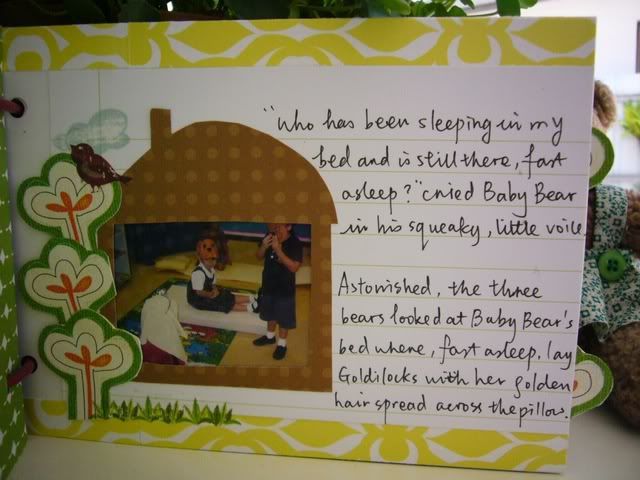 "Who has been sleeping in my
bed and is still there, fast
asleep?" cried Baby Bear
in his squeaky, little voice
Astonished, the three
bears looked at Baby Bear's
bed where, fast asleep, lay
Goldilocks with her golden
hair spread across the pillow.